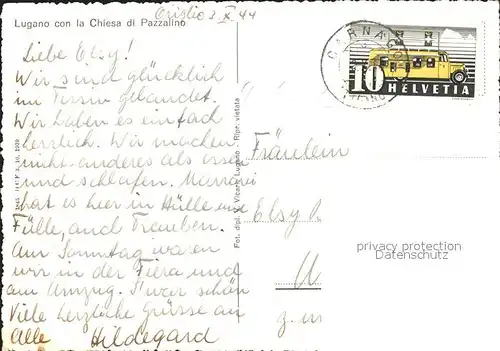 Lugano con la Chiesa di Pazzalino
Cristio 3 X 44
Liebe Elsy!
Wir sind glücklich
im Tessin gelandet.
Wir haben es einfach
herzlich. Wir machen
nicht anderes als essen
und schlafen. Marroni
hat es hier in Hülle und
Fülle, auch Trauben.
Am Sonntag waren
wir in der Fiera und
am Umzug. S'war schön
Viele herzliche Grüsse an
alle Hildegard
Fot. dipl. V. Vicari, Lugano - Ripr. vietata
CARNAGO
10 HELVETIA
Fräulein
Elsy
privacy protection
Datenschutz